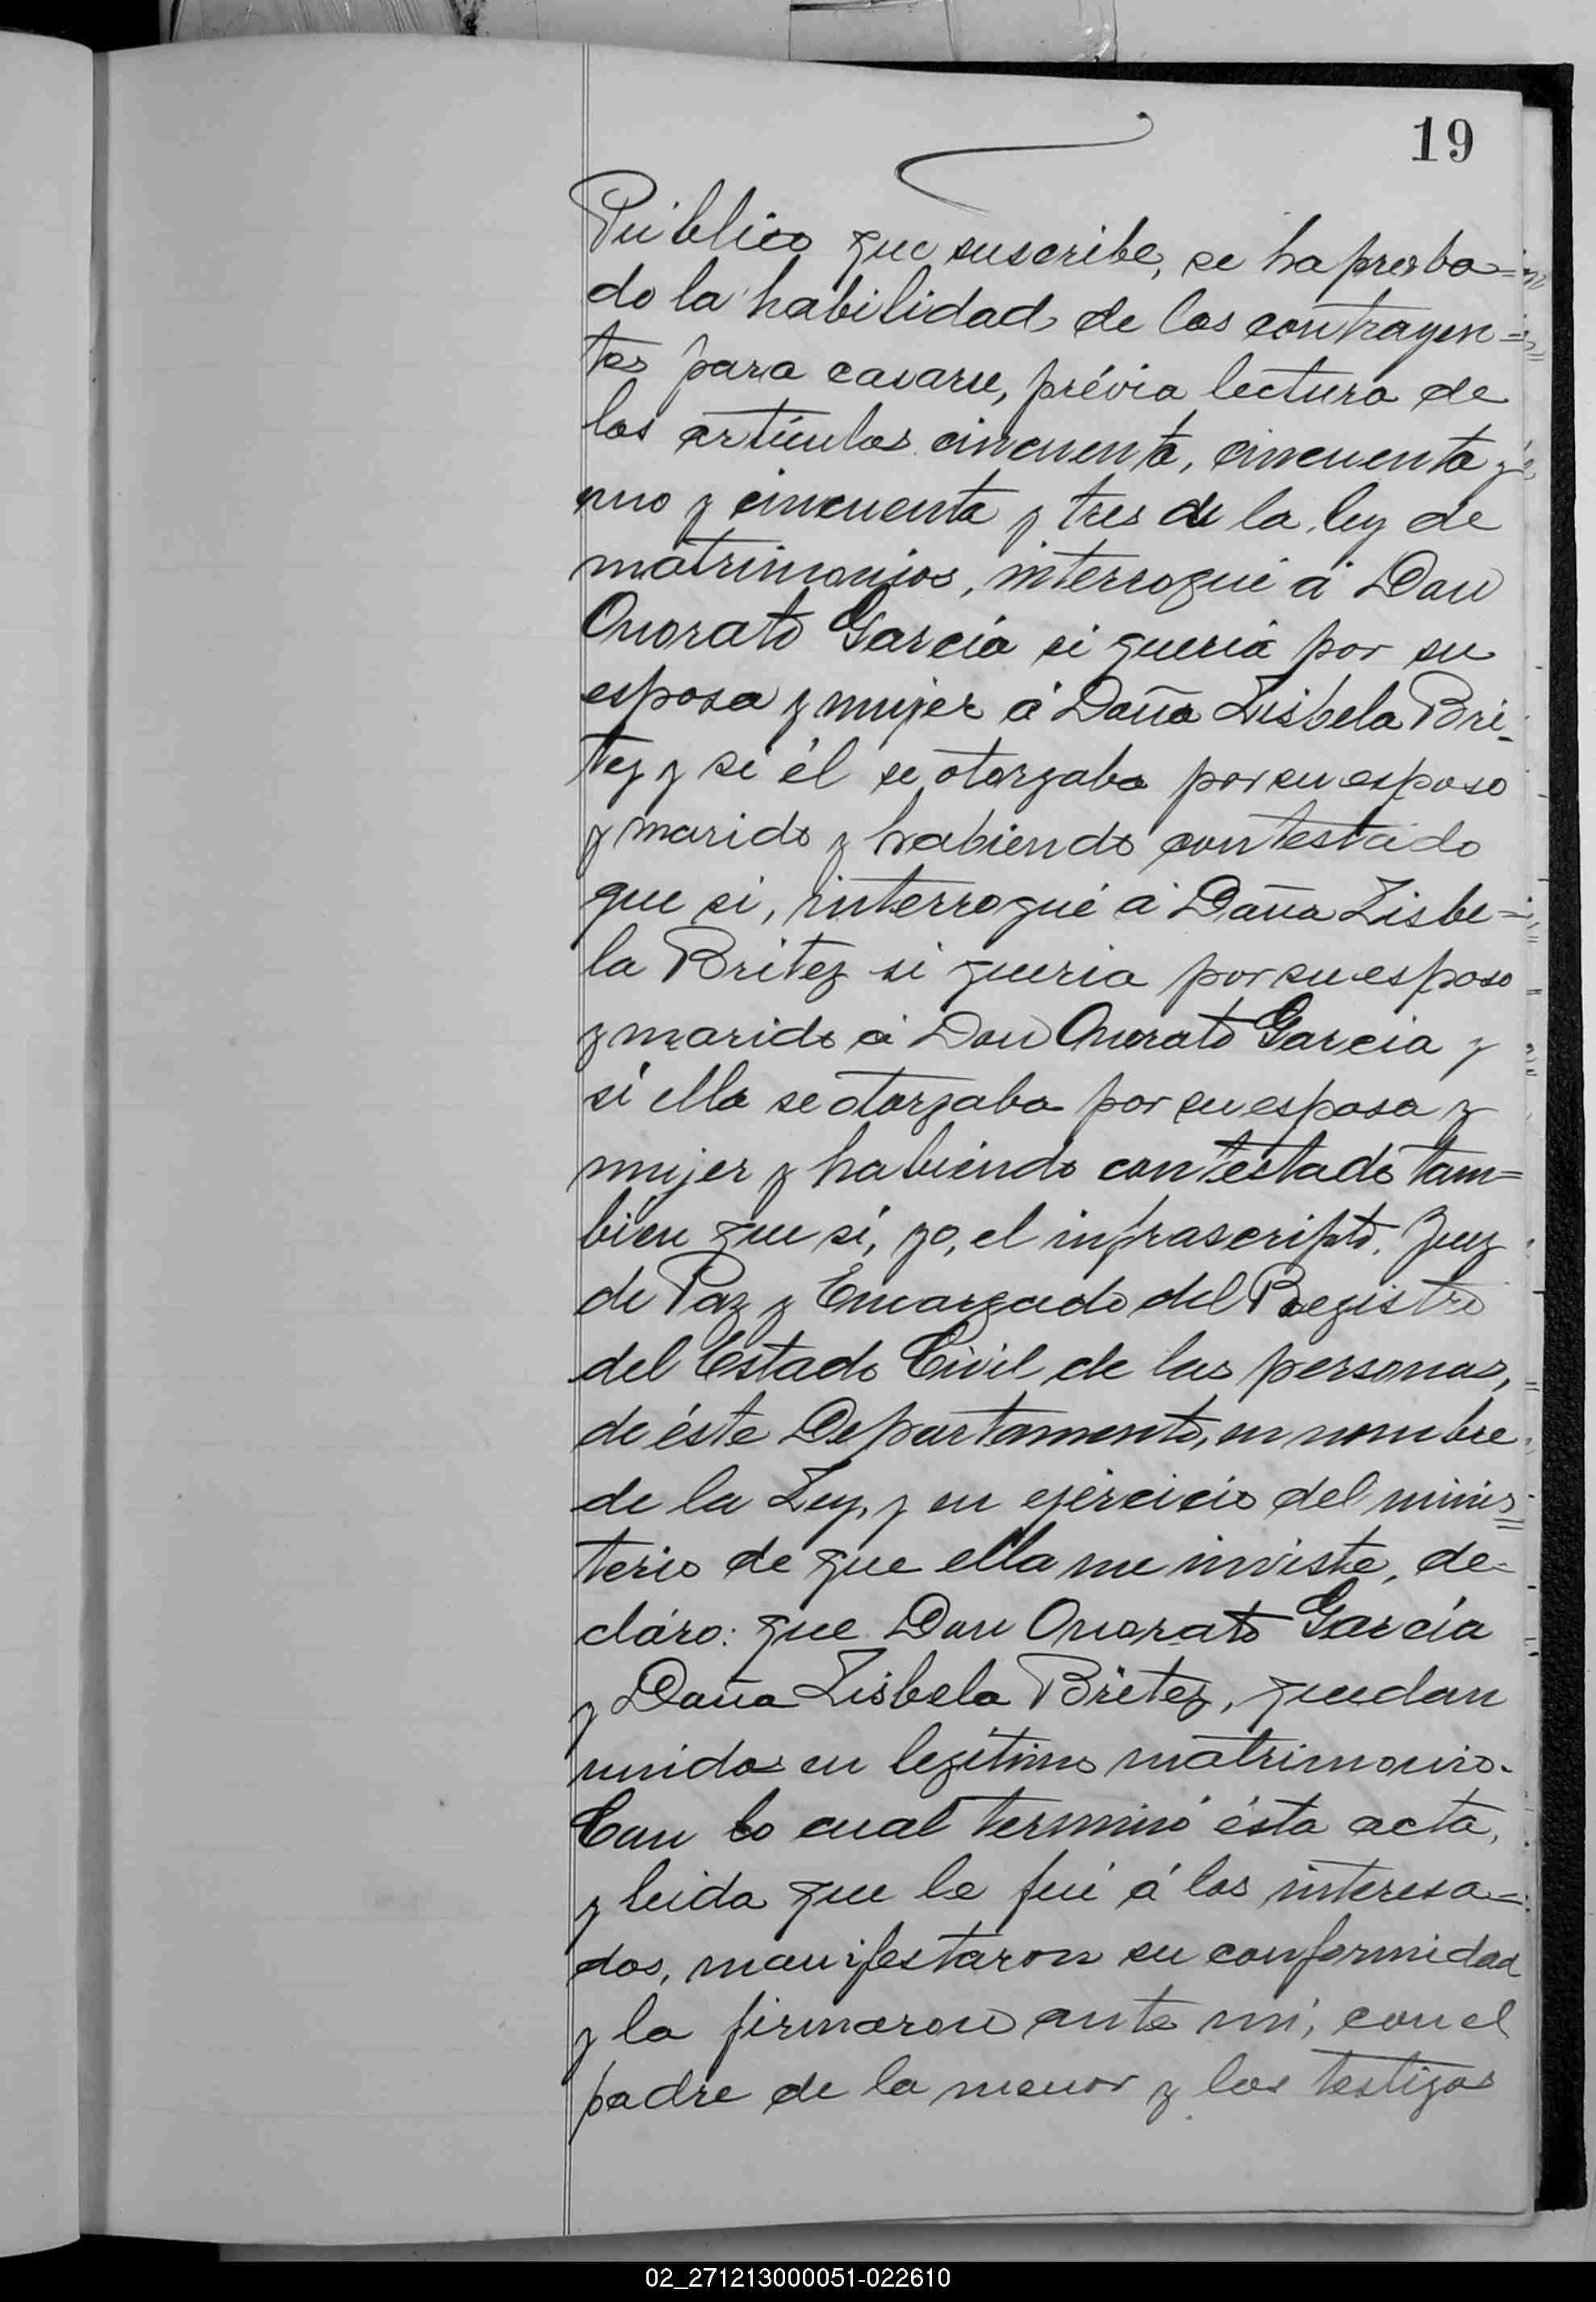 19
Público que suscribe, se ha proba=
do la habilidad de los contrayen=
tes para casarse, prévia lectura de
los artículos cincuenta, cincuenta y
uno y cincuenta y tres de la ley de
matrimonios, interrogué á Don
Onorato García si quería por su
esposa y mujer á Doña Lisbela Bri-
tez y si él se otorgaba por su esposo
y marido y habiendo contestado
que si, interrogué á Doña Lisbe=
la Britez si queria por su esposo
y marido á Don Onorato Garcia y
si ella se otorgaba por su esposa y
mujer y habiendo contestado tam=
bien que sí, yo, el infrascripto, Juez
de Paz y Encargado del Registro
del Estado Civil de las personas,
de éste Departamento, en nombre
de la Ley, y en ejercicio del minis=
terio de que ella me inviste, de-
cláro: que Don Onorato García
y Doña Lisbela Britez, quedan
unidos en legítimo matrimonio.
Con lo cual terminó ésta acta,
y leida que le fué á los interesa=
dos, manifestaron su conformidad
y la firmaron ante mi, con el
padre de la menor y los testigos
02_271213000051-022610